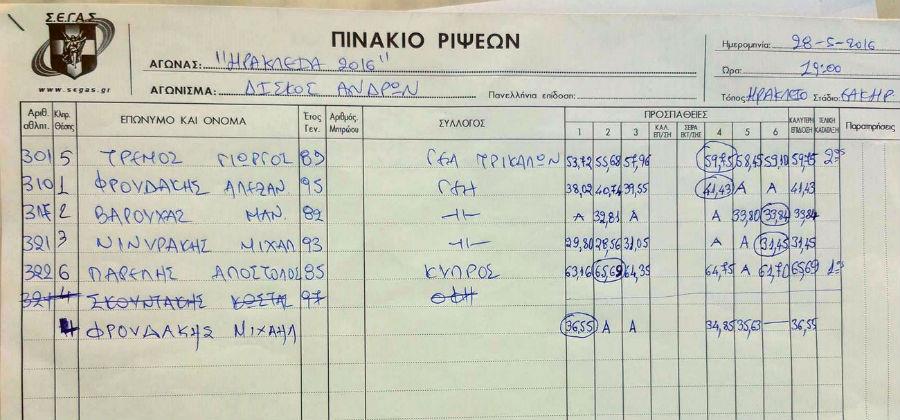 Σ.Ε.Γ.Α.Σ.
www.segas.gr
ΠΙΝΑΚΙΟ ΡΙΨΕΩΝ
ΑΓΩΝΑΣ: "ΗΡΑΚΛΕΙΑ 2016"
ΑΓΩΝΙΣΜΑ: ΔΙΣΚΟΣ ΑΝΔΡΩΝ Πανελλήνια επίδοση:
Ημερομηνία: 28-5-2016
Ώρα: 19:00
Τόπος: ΗΡΑΚΛΕΙΟ Στάδιο: ΕΑΚ ΗΡ.
Αριθ. αθλητ. Κληρ. Θέσης ΕΠΩΝΥΜΟ ΚΑΙ ΟΝΟΜΑ Έτος Γεν. Αριθμός Μητρώου ΣΥΛΛΟΓΟΣ ΠΡΟΣΠΑΘΕΙΕΣ 1 2 3 ΚΑΛ. ΕΠ/ΣΗ ΣΕΙΡΑ ΕΚΤ/ΣΗΣ 4 5 6 ΚΑΛΥΤΕΡΗ ΕΠΙΔΟΣΗ ΤΕΛΙΚΗ ΚΑΤΑΤΑΞΗ Παρατηρήσεις
301 5 ΤΡΕΜΟΣ ΓΙΩΡΓΟΣ 89 ΓΕΑ ΤΡΙΚΑΛΩΝ 53,72 55,68 57,96 59,75 58,45 59,10 59,75 2ος
310 1 ΦΡΟΥΔΑΚΗΣ ΑΛΕΞΑΝ 95 ΓΕΗ 38,02 40,74 39,55 41,43 Α Α 41,43
2 ΒΑΡΟΥΧΑΣ ΜΑΝ. 82 -||- Α 32,81 Α Α 33,80 33,84 33,84
321 3 ΝΙΝΥΡΑΚΗΣ ΜΙΧΑΛ 93 -||- 29,80 28,56 31,05 Α Α 31,45 31,45
322 6 ΠΑΡΕΛΗΣ ΑΠΟΣΤΟΛΟΣ 85 ΚΥΠΡΟΣ 63,16 65,69 64,35 64,75 Α 62,70 65,69 1ος
4 ΣΚΟΥΝΤΑΚΗΣ ΚΩΣΤΑΣ 97 ΟΦΗ
4 ΦΡΟΥΔΑΚΗΣ ΜΙΧΑΗΛ 36,55 Α Α 34,85 35,63 — 36,55